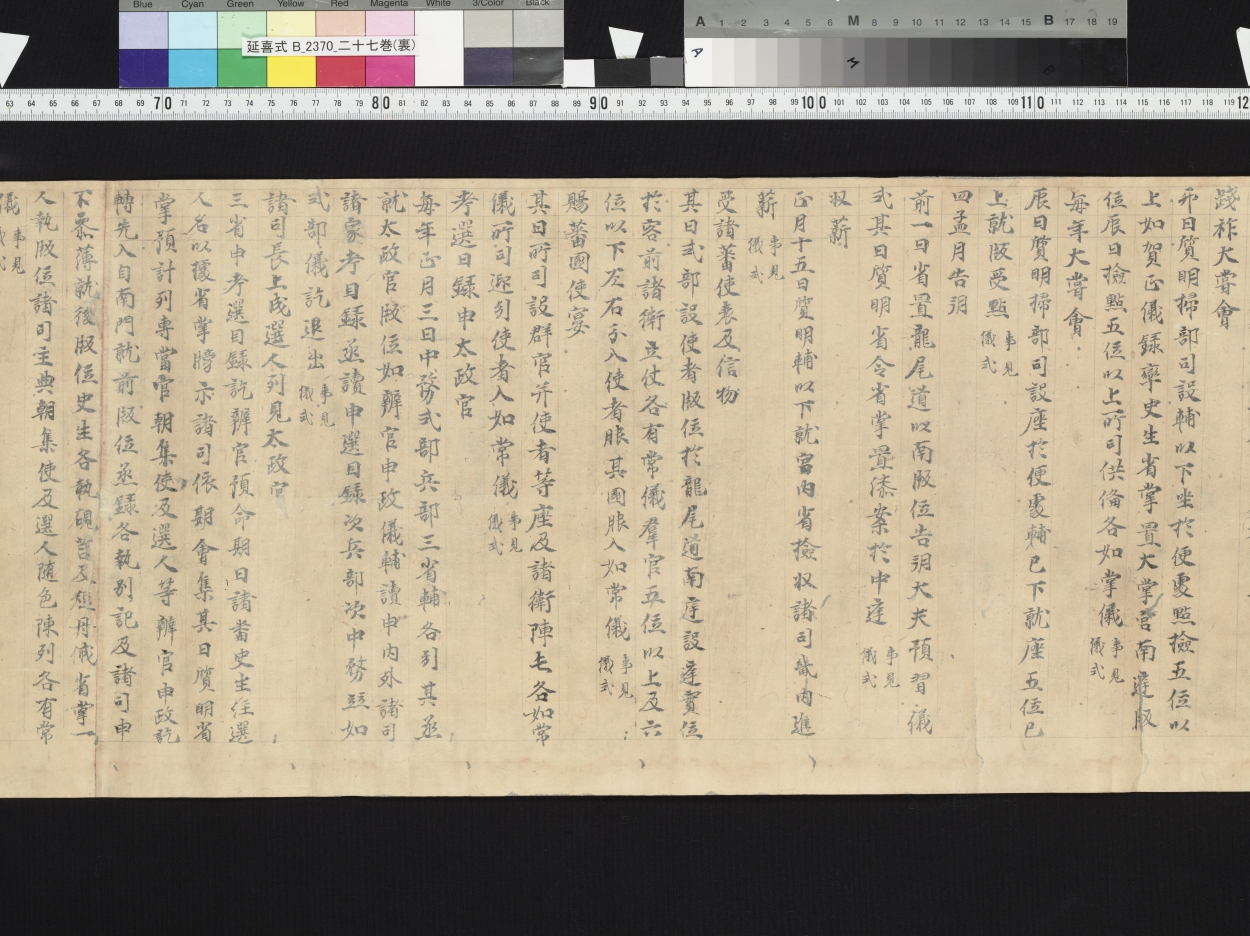 Blue Cyan Green Yellow Red Magenta White 3/Color Black
延喜式 B_2370_二十七巻(裏)
A 1 2 3 4 5 6 M 8 9 10 11 12 13 14 15 B 17 18 19
63 64 65 66 67 68 69 70 71 72 73 74 75 76 77 78 79 80 81 82 83 84 85 86 87 88 89 90 91 92 93 94 95 96 97 98 99 100 101 102 103 104 105 106 107 108 109 110 111 112 113 114 115 116 117 118 119 12
踐祚大嘗會
卯日質明掃部司設輔以下坐於便處點撿五位以
上如賀正儀錄率史生省掌置大掌宮南逵版
位辰日撿點五位以上所司供備各如掌儀 事見儀式
每年大嘗會
辰日質明掃部司設座於便處輔已下就座五位已
上就版受點 事見儀式
四孟月告朔
前一日省置龍尾道以南版位告朔大夫預習儀
式其日質明省令省掌置漆案於中逵 事見儀式
収薪
正月十五日質明輔以下就宮內省撿収諸司畿內進
薪 事見儀式
受諸蕃使表及信物
其日式部設使者版位於龍尾道南庭設逵實位
於客前諸衛立仗各有常儀羣官五位以上及六
位以下左右分入使者服其國服入如常儀 事見儀式
賜蕃國使宴
其日所司設群官并使者等座及諸衛陣七各如常
儀所司遞引使者入如常儀 事見儀式
考選目録申太政官
每年正月三日中務式部兵部三省輔各引其丞
就太政官版位如辨官申政儀輔讀申內外諸司
諸家考目録丞讀申選目録次兵部次中務並如
式部儀訖退出 事見儀式
諸司長上成選人列見太政官
三省申考選目録訖辨官預命期日諸省史生任選
人名以擐省掌牓示諸司依期會集其日質明省
掌預計列專當官朝集使及選人等辨官申政訖
轉先入自南門就前版位丞録各執別記及諸司申
下
人執版位諸司主典朝集使及選人隨色陳列各有常
儀 事見儀式